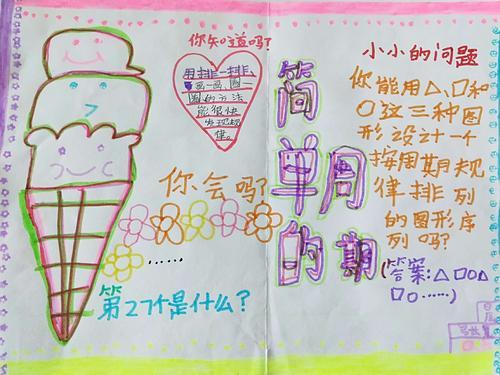 你知道吗?
用排一排、
画一画、圈一
圈的方法
能很快
发现规
律。
你会吗?
......
第27个是什么?
简单的周期
小小的问题
你能用△、□和
○这三种图
形设计一个
按周期规
律排列
的图形序
列吗?
(答案:△□○△
□○......)